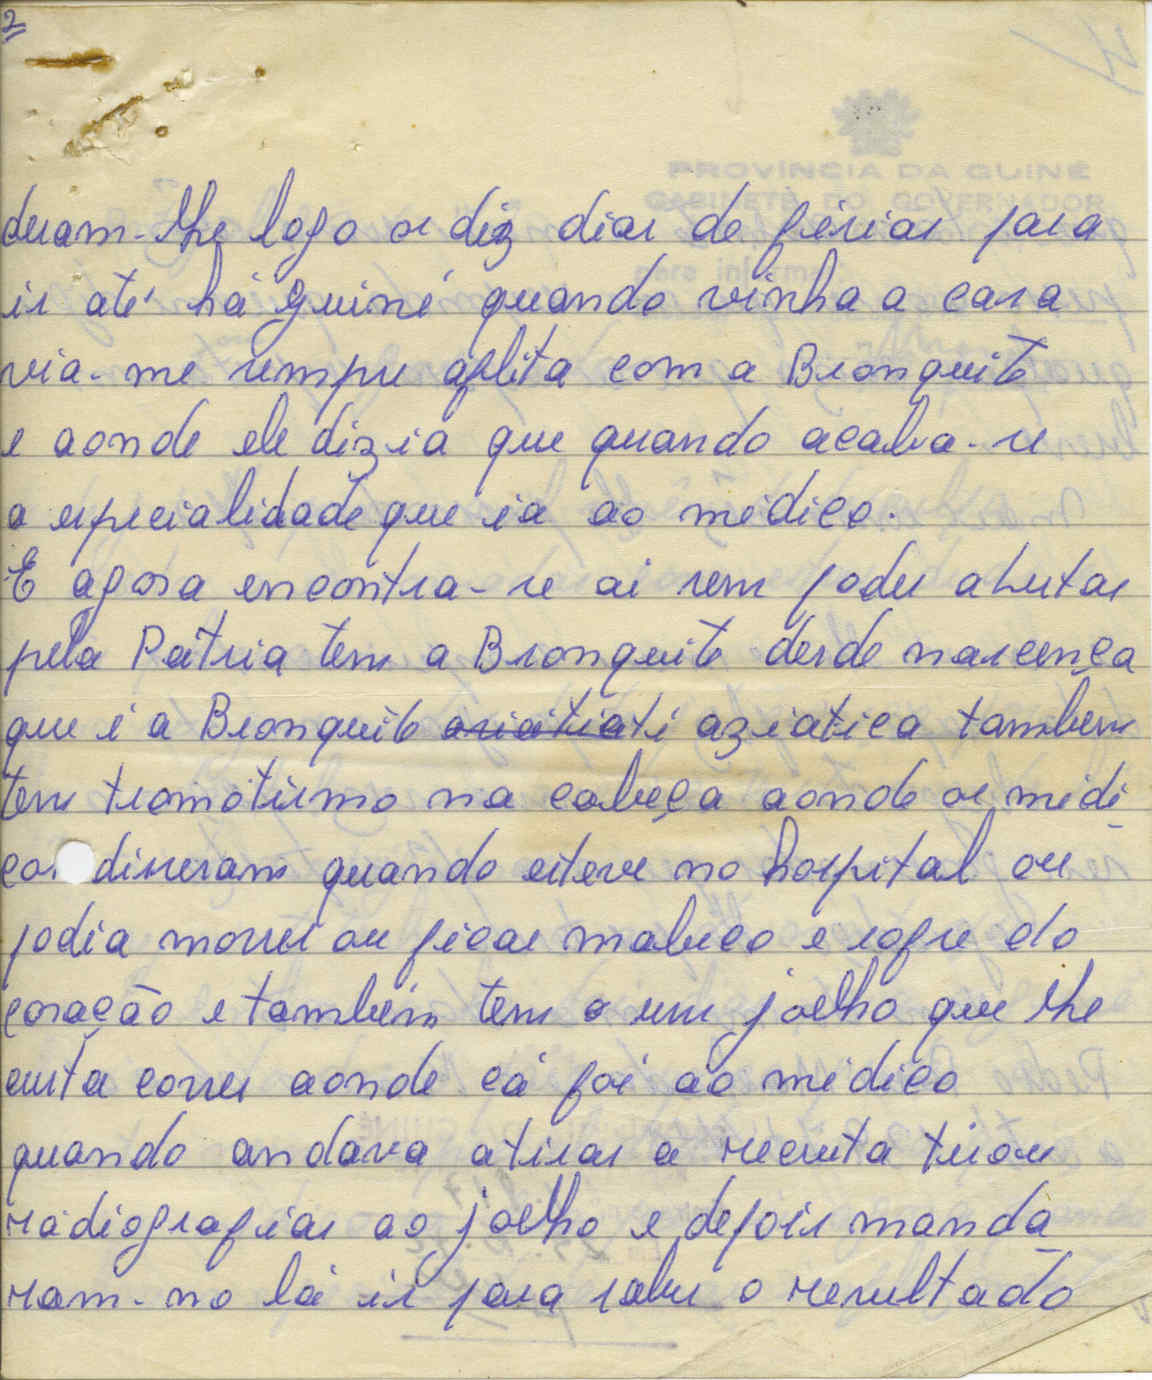 2
PROVÍNCIA DA GUINÉ
GABINETE DO GOVERNADOR
deram-lhe logo os diz dias de férias para
ir até há Guiné quando vinha a casa
via-me sempre aflita com a Bronquite
e aonde ele dizia que quando acaba-se
a especialidade que ia ao médico.
E agora encontra-se ai sem poder a Lutar
pela Pátria tem a Bronquite desde nascença
que é a Bronquite aziatica também
tem tromotismo na cabeça aonde os medi
cos disseram quando esteve no hospital ou
podia morrer ou ficar maluco e sofre do
coração e também tem o um joelho que lhe
custa correr aonde cá foi ao médico
quando andava a tirar a recruta tirou
radiografias ao joelho e depois manda
ram-no lá ir para saber o resultado